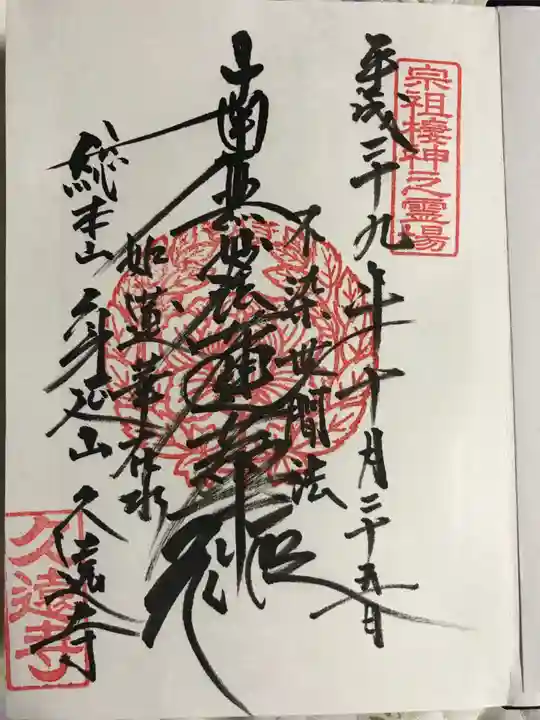 宗祖棲神之霊場
平成二十九年十月二十五日
不染世間法
南無妙法蓮華経
如蓮華在水
総本山身延山久遠寺
久遠寺